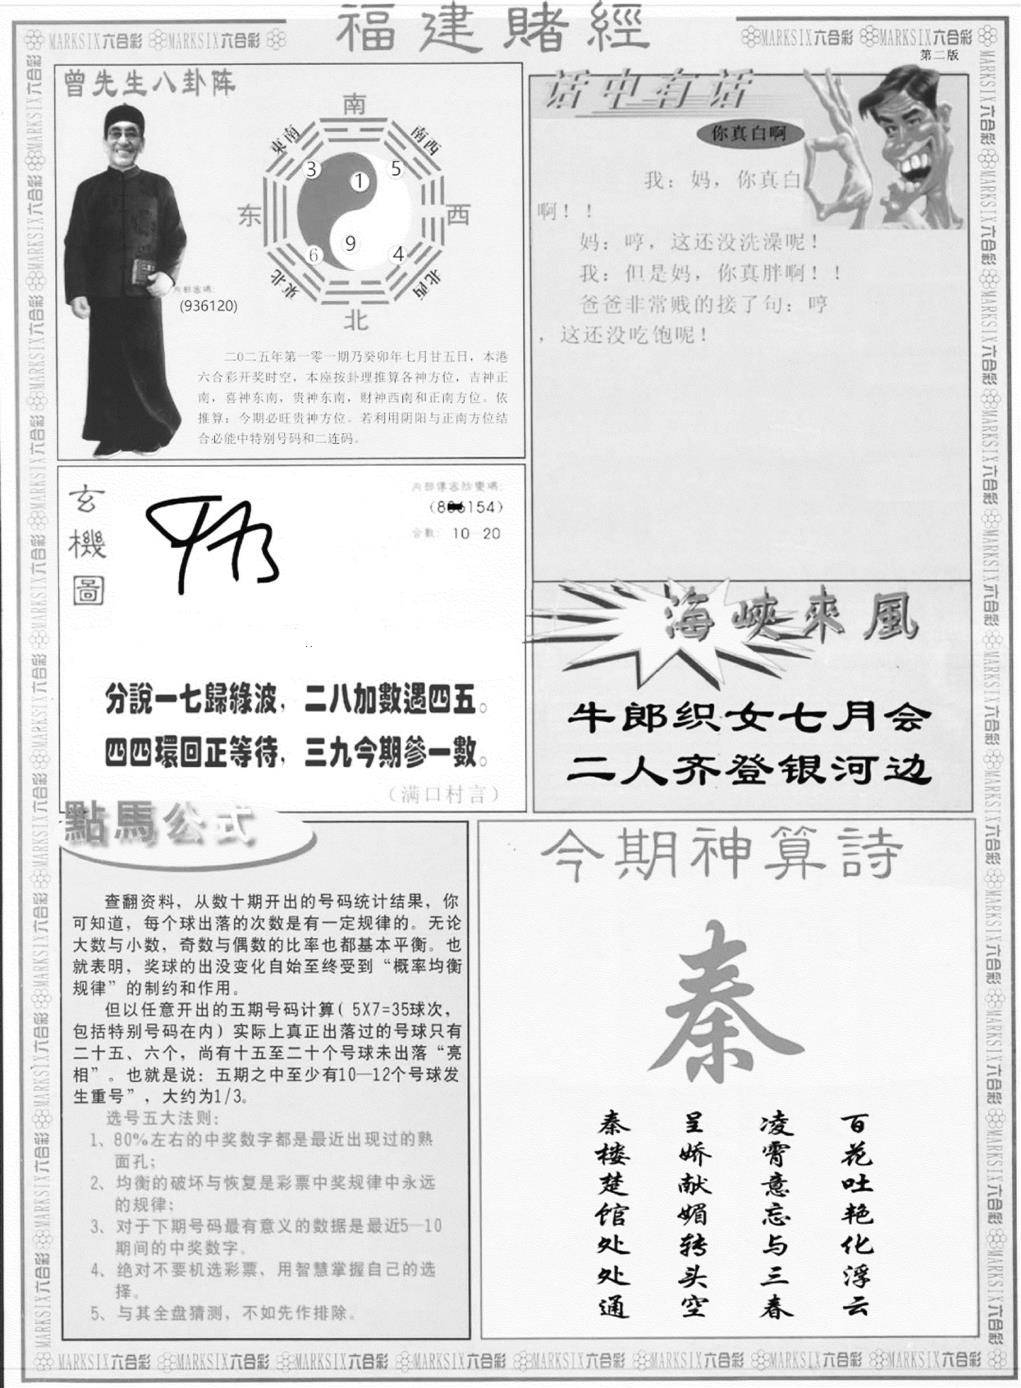 福建賭經
MARKSIX六合彩 MARKSIX六合彩 MARKSIX六合彩 MARKSIX六合彩
第二版
曾先生八卦阵
南
東南 南西
3 1 5
东 西
9
6 4
東北 北西
北
内部密碼:
(936120)
二0二五年第一零一期乃癸卯年七月廿五日，本港
六合彩开奖时空，本座按卦理推算各神方位，吉神正
南，喜神东南，贵神东南，财神西南和正南方位。依
推算：今期必旺贵神方位。若利用阴阳与正南方位结
合必能中特别号码和二连码。
话中有话
你真白啊
我：妈，你真白
啊！！
妈：哼，这还没洗澡呢！
我：但是妈，你真胖啊！！
爸爸非常贱的接了句：哼
，这还没吃饱呢！
玄機圖
(8 6154)
合數： 10 20
分說一七歸綠波，二八加數遇四五。
四四環回正等待，三九今期參一數。
（满口村言）
海峽來風
牛郎织女七月会
二人齐登银河边
點馬公式
查翻资料，从数十期开出的号码统计结果，你
可知道，每个球出落的次数是有一定规律的。无论
大数与小数，奇数与偶数的比率也都基本平衡。也
就表明，奖球的出没变化自始至终受到“概率均衡
规律”的制约和作用。
但以任意开出的五期号码计算( 5X7=35球次，
包括特别号码在内)实际上真正出落过的号球只有
二十五、六个，尚有十五至二十个号球未出落“亮
相”。也就是说：五期之中至少有10—12个号球发
生重号”，大约为1/3。
选号五大法则：
1、80%左右的中奖数字都是最近出现过的熟
面孔；
2、均衡的破坏与恢复是彩票中奖规律中永远
的规律；
3、对于下期号码最有意义的数据是最近5—10
期间的中奖数字。
4、绝对不要机选彩票，用智慧掌握自己的选
择。
5、与其全盘猜测，不如先作排除。
今期神算詩
秦
百花吐艳化浮云
凌霄意忘与三春
呈娇献媚转头空
秦楼楚馆处处通
MARKSIX六合彩 MARKSIX六合彩 MARKSIX六合彩 MARKSIX六合彩 MARKSIX六合彩 MARKSIX六合彩 MARKSIX六合彩 MARKSIX六合彩